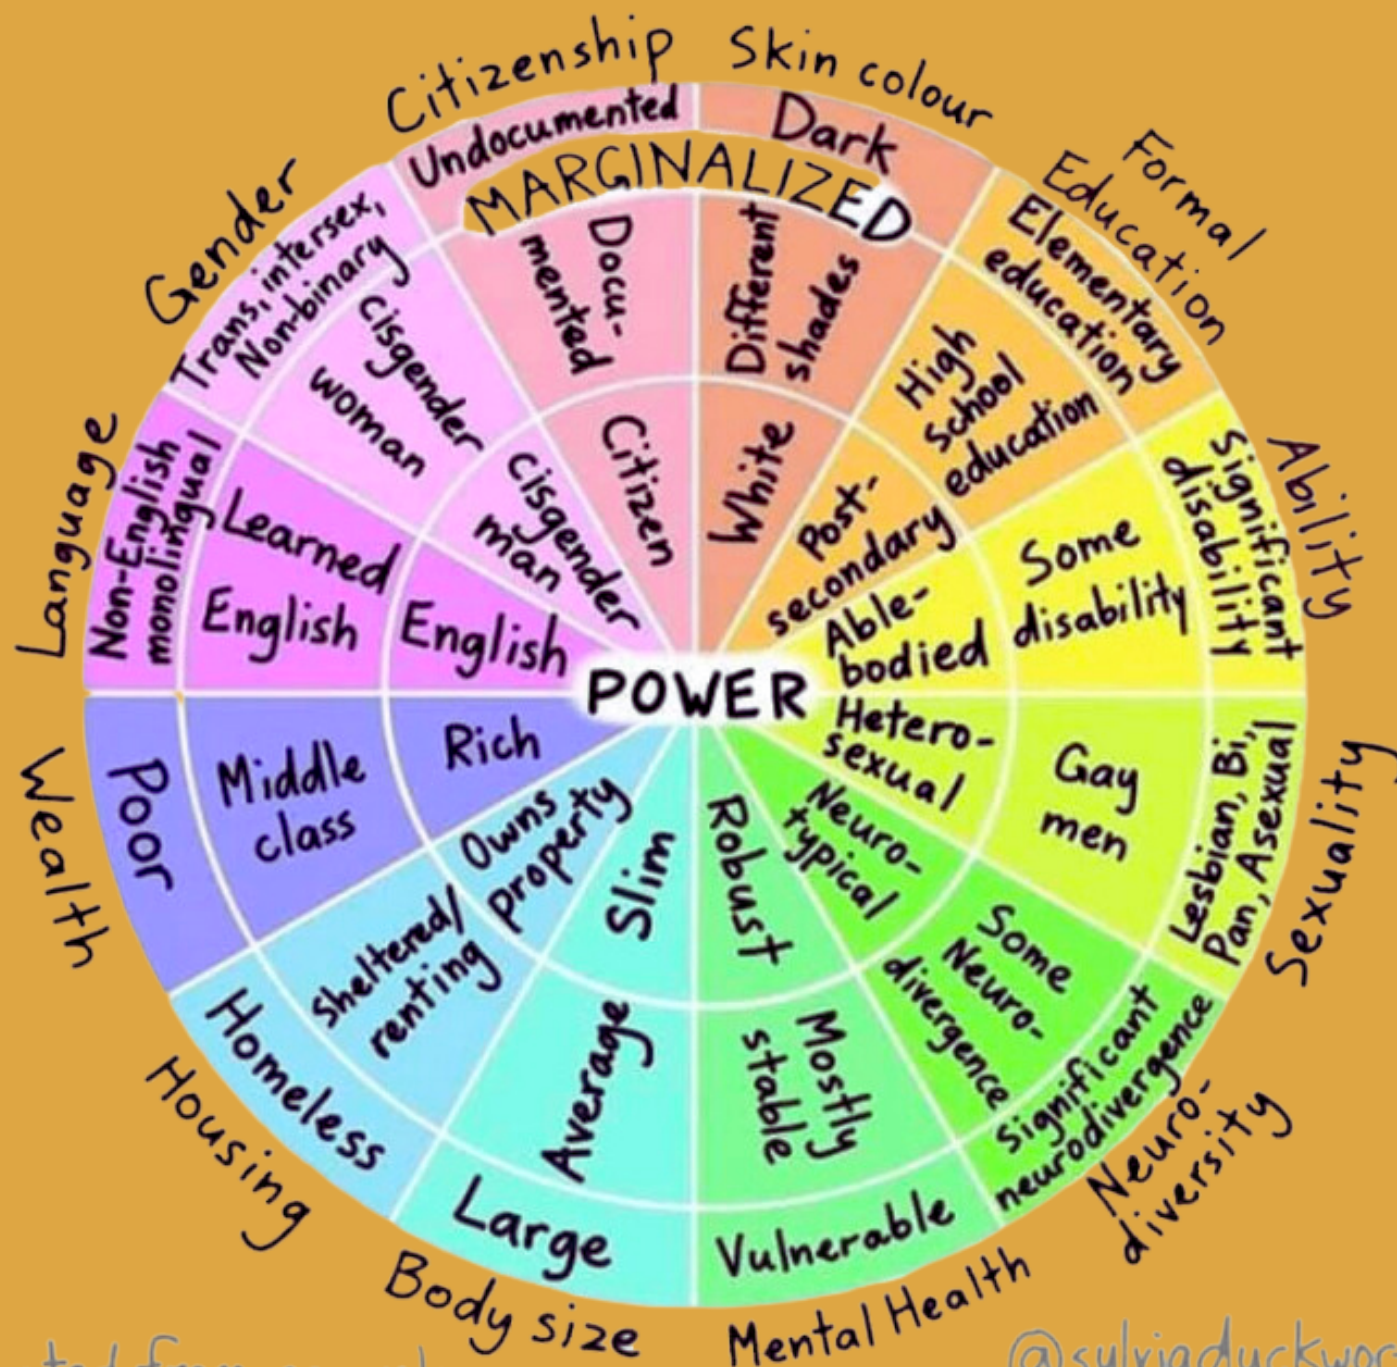 Citizenship
Undocumented
Docu-
mented
Citizen
Skin colour
Dark
Different
shades
White
MARGINALIZED
Formal
Education
Elementary
education
High
School
education
Post-
secondary
Ability
Significant
disability
Some
disability
Able-
bodied
Sexuality
Lesbian, Bi,
Pan, Asexual
Gay
men
Hetero-
sexual
Neuro-
diversity
Significant
neurodivergence
Some
Neuro-
divergence
Neuro-
typical
Mental Health
Vulnerable
Mostly
stable
Robust
Body size
Large
Average
Slim
Housing
Homeless
Sheltered/
renting
Owns
property
Wealth
Poor
Middle
class
Rich
Language
Non-English
monolingual
Learned
English
English
Gender
Trans, intersex,
Non-binary
Cisgender
woman
Cisgender
man
POWER
@sylviaduckwor